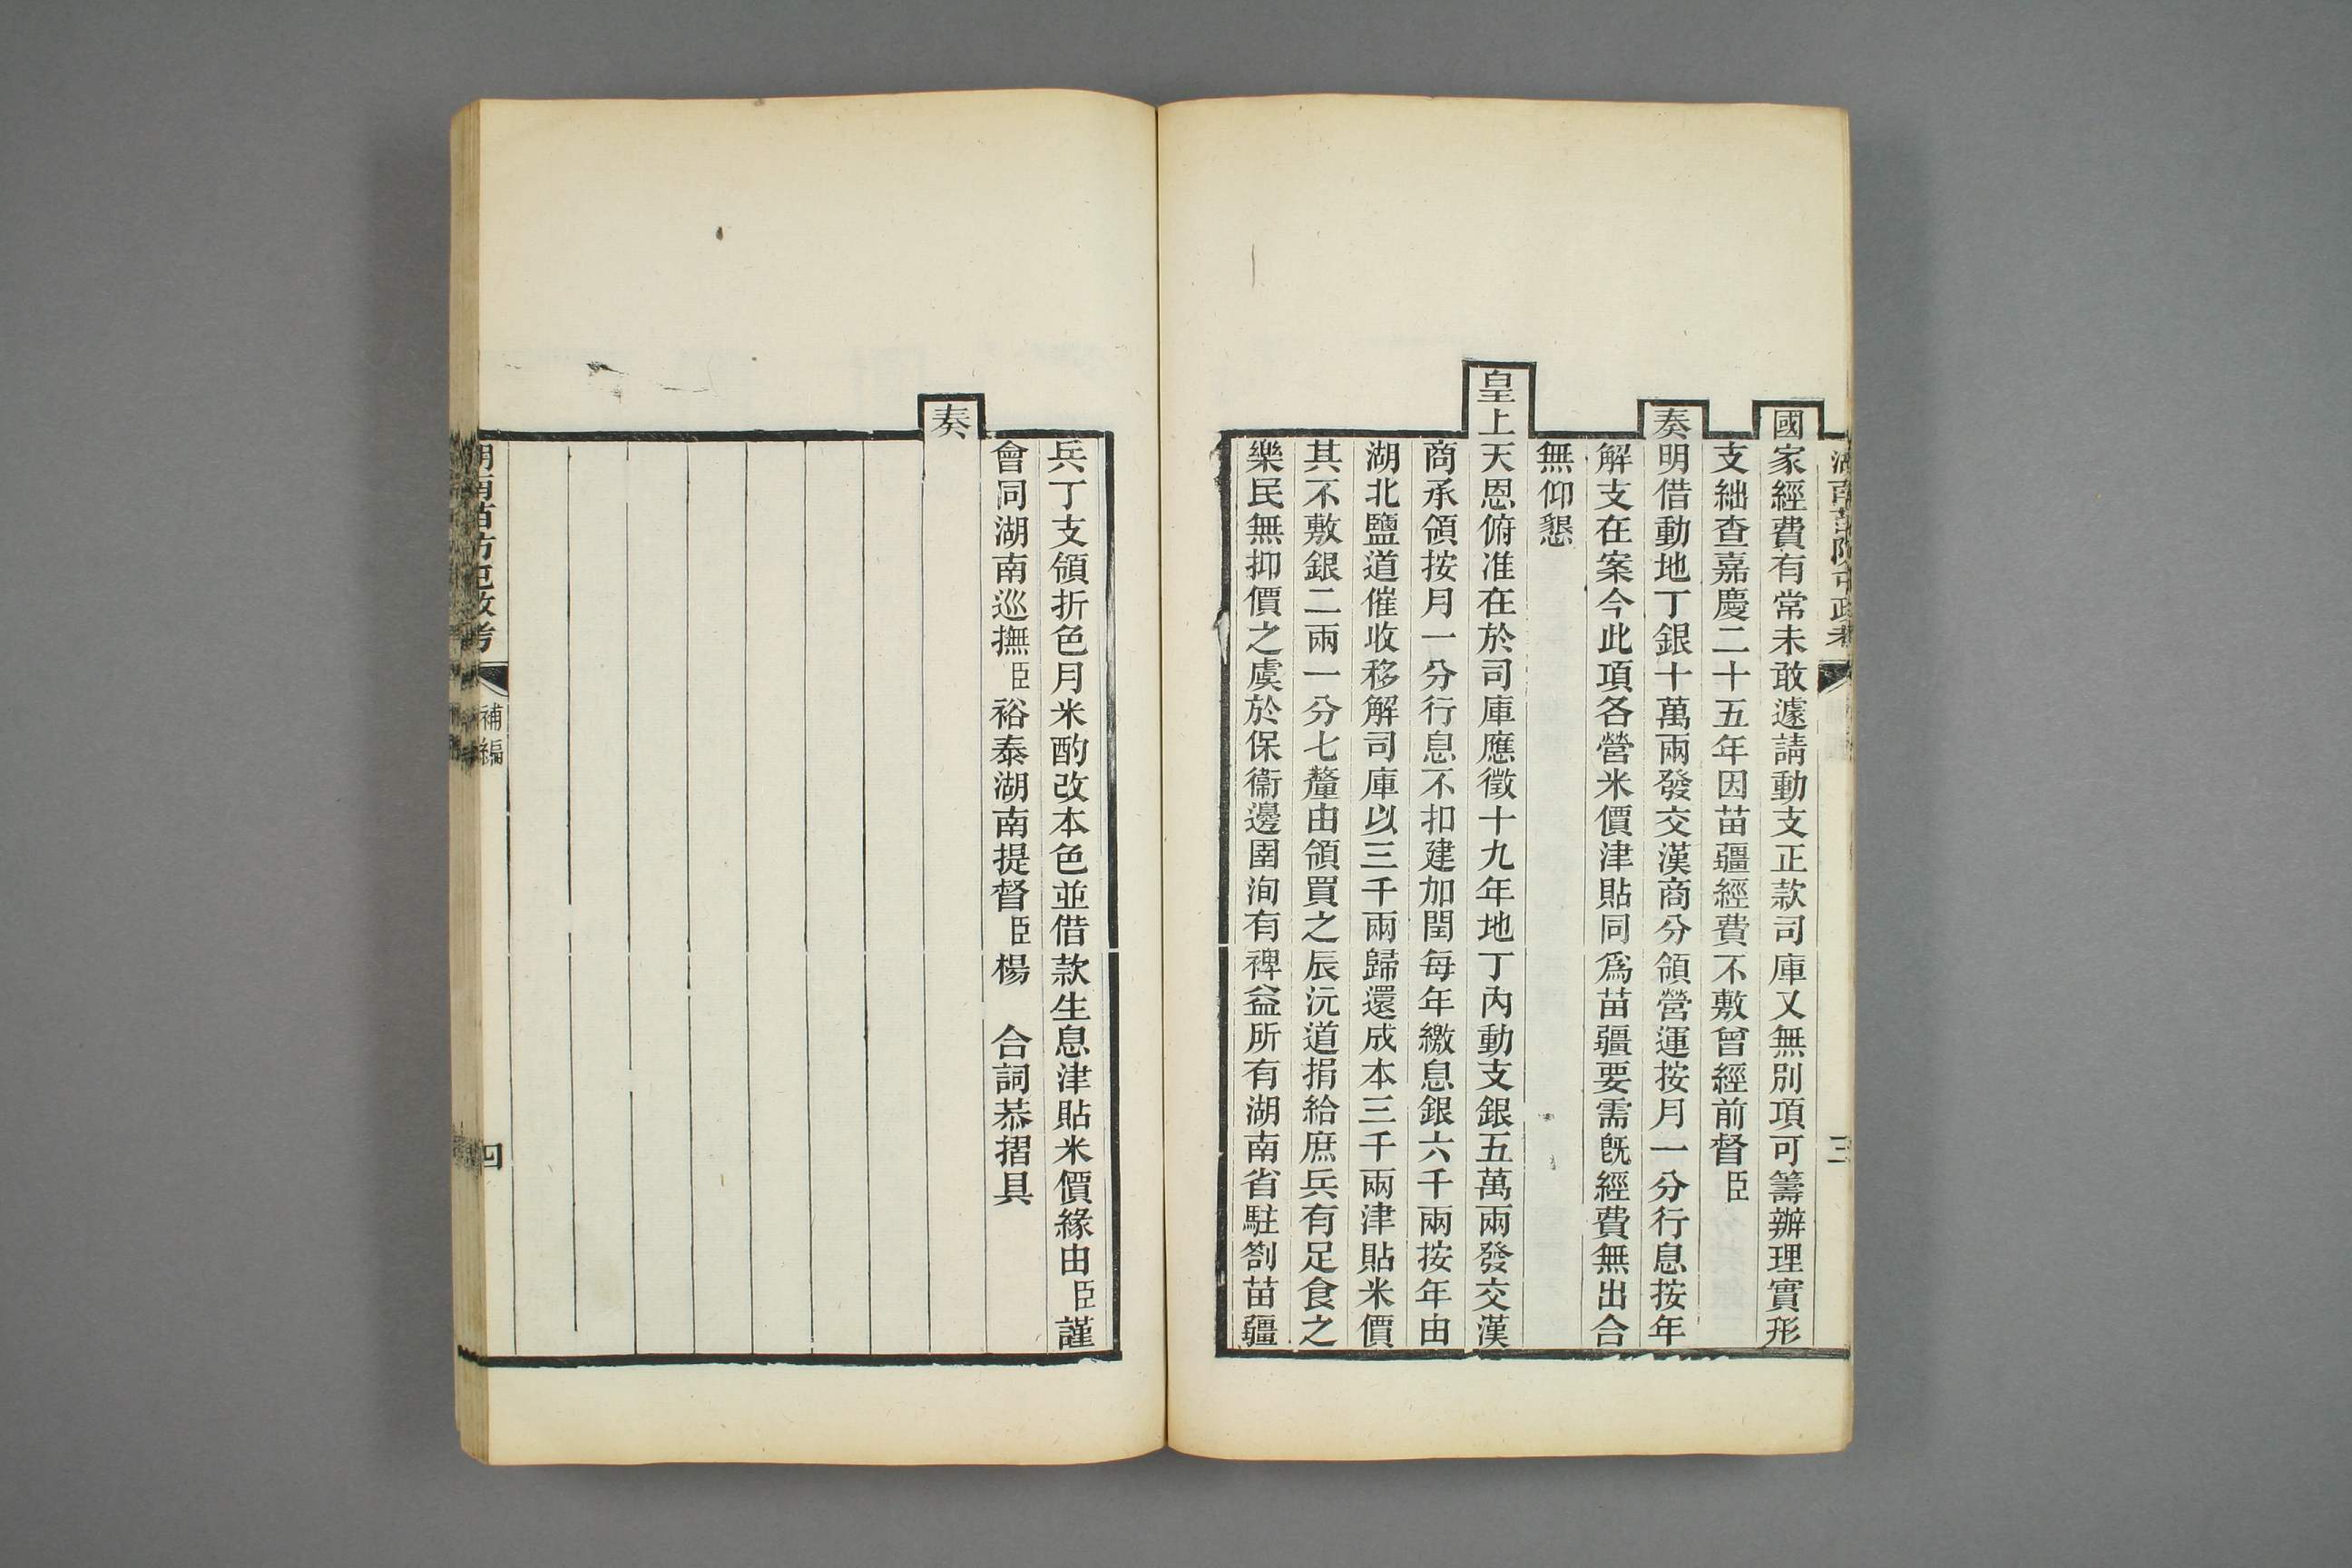 國家經費有常未敢遽請動支正款司庫又無別項可籌辦理實形
支絀查嘉慶二十五年因苗疆經費不敷曾經前督臣
奏明借動地丁銀十萬兩發交漢商分領營運按月一分行息按年
解支在案今此項各營米價津貼同爲苗疆要需旣經費無出合
無仰懇
皇上天恩俯准在於司庫應徵十九年地丁內動支銀五萬兩發交漢
商承領按月一分行息不扣建加閏每年繳息銀六千兩按年由
湖北鹽道催收移解司庫以三千兩歸還成本三千兩津貼米價
其不敷銀二兩一分七釐由領買之辰沅道捐給庶兵有足食之
樂民無抑價之虞於保衞邊圉洵有裨益所有湖南省駐劄苗疆
兵丁支領折色月米酌改本色並借款生息津貼米價緣由臣謹
會同湖南巡撫臣裕泰湖南提督臣楊　合詞恭摺具
奏
湖南苗防屯政考
補編
四